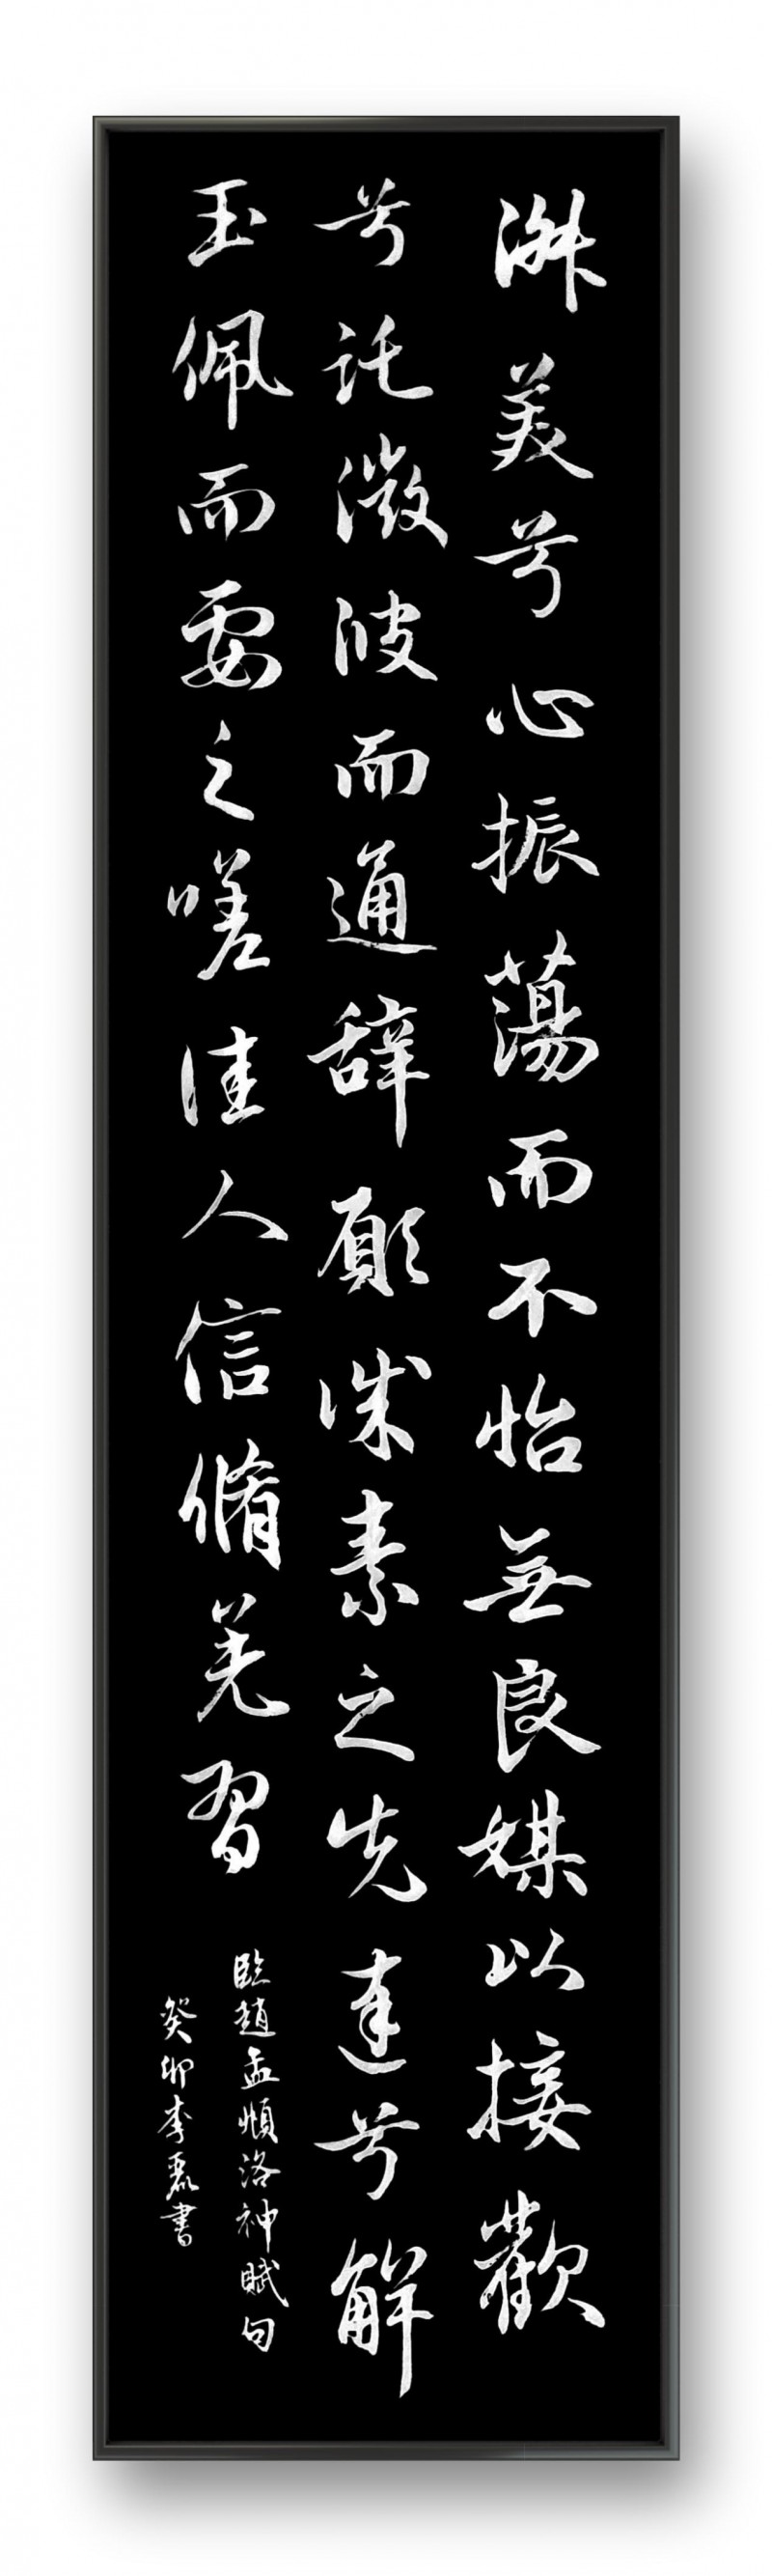 淑美兮心振蕩而不怡無良媒以接歡
兮託微波而通辞願誠素之先達兮解
玉佩而要之嗟佳人信脩羌習
臨趙孟頫洛神賦句
癸卯李磊書